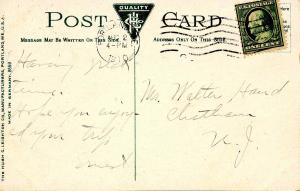 QUALITY
POST CARD
MESSAGE MAY BE WRITTEN ON THIS SIDE
ADDRESS ONLY ON THIS SIDE
4-PM
ONE CENT
Having
time.
Hope you enjoyed
your trip
Mr. Walter
Chatham
N. J.
THE HUGH C. LEIGHTON CO., MANUFACTURERS, PORTLAND, ME., U.S.A.
MADE IN GERMANY